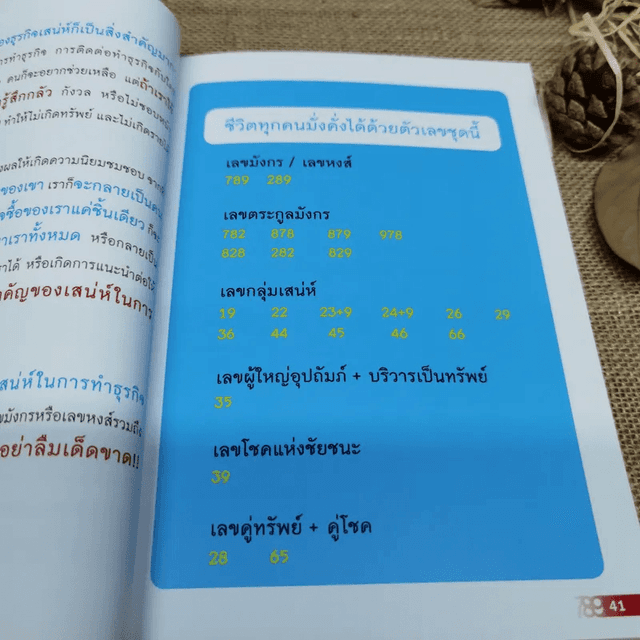 ธุรกิจเสน่ห์ก็เป็นสิ่งสำคัญ
การทำธุรกิจ การติดต่อทำธุรกิจ
คนก็จะอยากช่วยเหลือ แต่ถ้าเรา
รู้สึกกลัว กังวล หรือไม่ชอบ
ทำให้ไม่เกิดทรัพย์ และไม่เกิด
ผลให้เกิดความนิยมชมชอบ
ของเขา เราก็จะกลายเป็น
ซื้อของเราแค่ชิ้นเดียว ก็
เราทั้งหมด หรือกลายเป็น
ราได้ หรือเกิดการแนะนำต่อ
คัญของเสน่ห์ในการ
สน่ห์ในการทำธุรกิจ
มังกรหรือเลขหงส์รวมถึง
อย่าลืมเด็ดขาด!!
ชีวิตทุกคนมั่งคั่งได้ด้วยตัวเลขชุดนี้
เลขมังกร / เลขหงส์
789 289
เลขตระกูลมังกร
782 878 879 978
828 282 829
เลขกลุ่มเสน่ห์
19 22 23+9 24+9 26 29
36 44 45 46 66
เลขผู้ใหญ่อุปถัมภ์ + บริวารเป็นทรัพย์
35
เลขโชคแห่งชัยชนะ
39
เลขคู่ทรัพย์ + คู่โชค
28 65
789 41